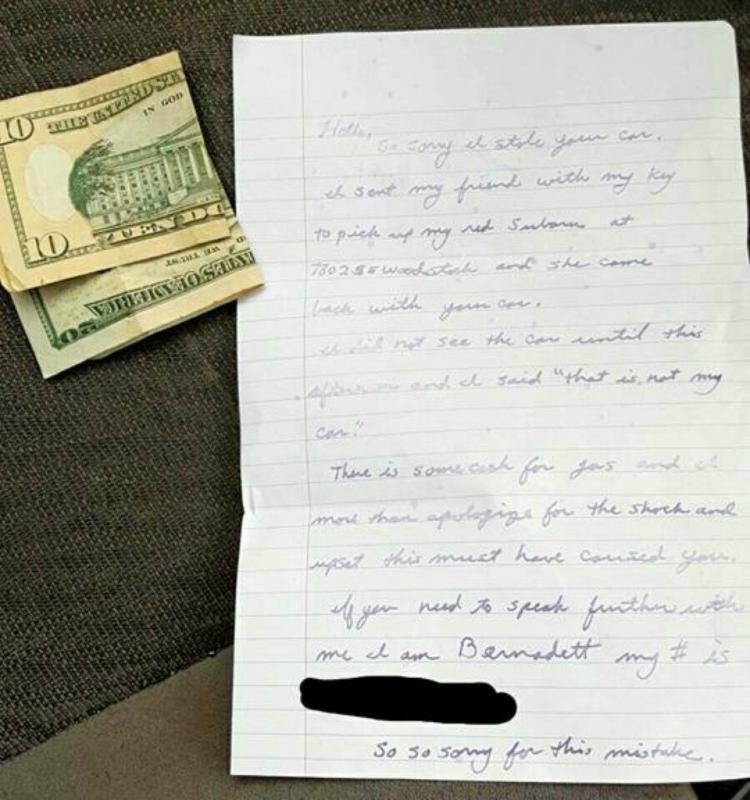 10
THE UNITED STA
IN GOD
10
TEN DO
WE TRUST
ATES OF AMERICA
Hello,
So sorry I stole your car.
I sent my friend with my key
to pick up my red Subaru at
7802 SE Woodstock and she came
back with your car.
I did not see the car until this
afternoon and I said "that is not my
car."
There is some cash for gas and I
more than apologize for the shock and
upset this must have caused you.
If you need to speak further with
me I am Bernadett my # is
So so sorry for this mistake.